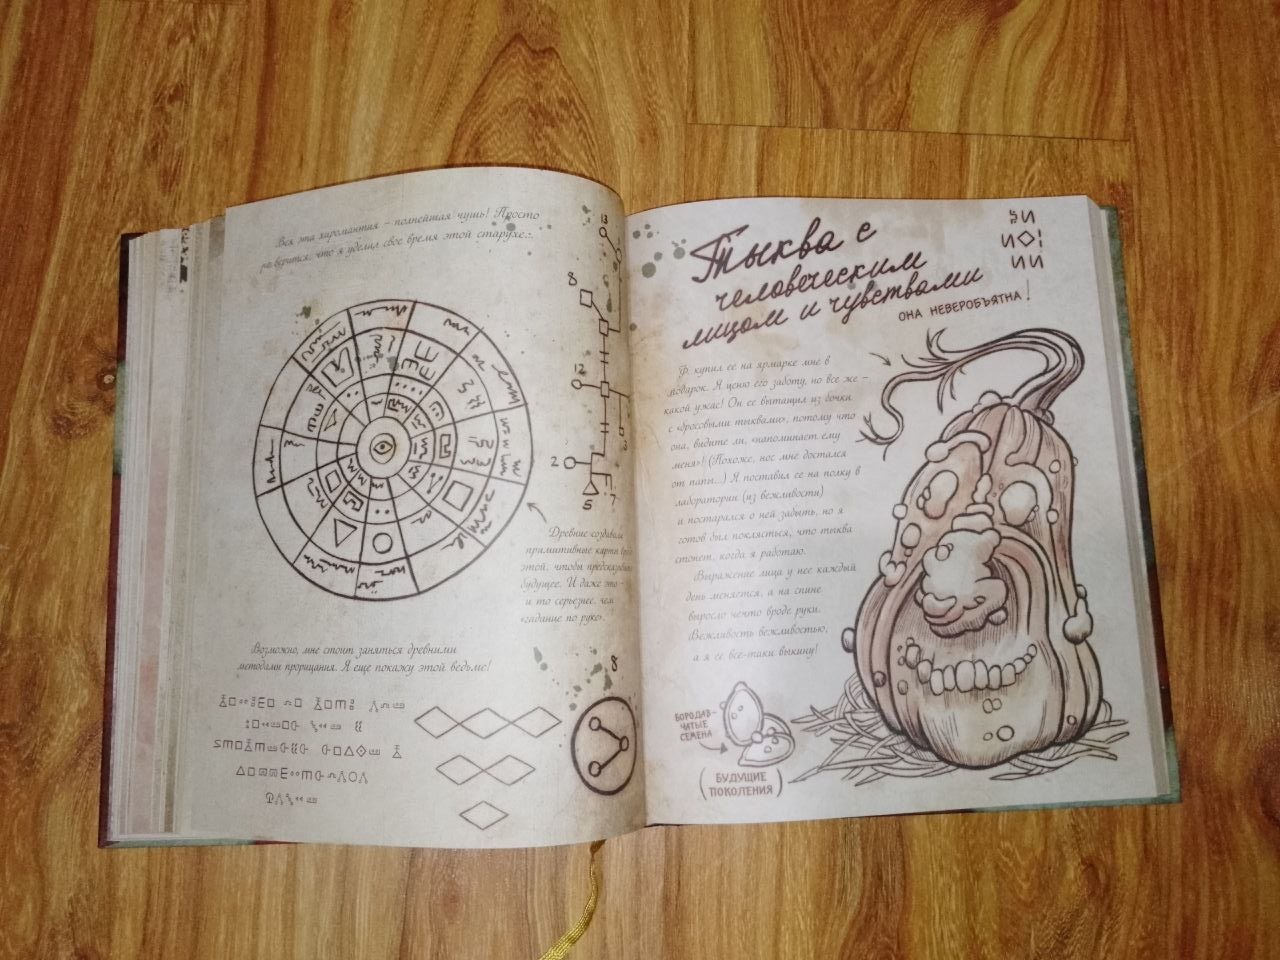 Вся эта хиромантия – полнейшая чушь! Просто
не верится, что я уделил свое время этой старухе...
13
8
12
2
3
7
5
Древние создавали
примитивные карты вроде
этой, чтобы предсказывать
будущее. И даже это –
и то серьезнее, чем
«гадание по руке».
Возможно, мне стоит заняться древними
методами прорицания. Я еще покажу этой ведьме!
8
Тыква с
человеческим
лицом и чувствами
ОНА НЕВЕРОБЪЯТНА!
Ф. купил ее на ярмарке мне в
подарок. Я ценю его заботу, но все же –
какой ужас! Он ее вытащил из бочки
с «бросовыми тыквами», потому что
она, видите ли, «напоминает ему
меня»! (Похоже, нос мне достался
от папы...) Я поставил ее на полку в
лаборатории (из вежливости)
и постарался о ней забыть, но я
готов был поклясться, что тыква
стонет, когда я работаю.
Выражение лица у нее каждый
день меняется, а на спине
выросло нечто вроде руки.
Вежливость вежливостью,
а я ее все-таки выкину!
БОРОДАВ-
ЧАТЫЕ
СЕМЕНА
(БУДУЩИЕ
ПОКОЛЕНИЯ)